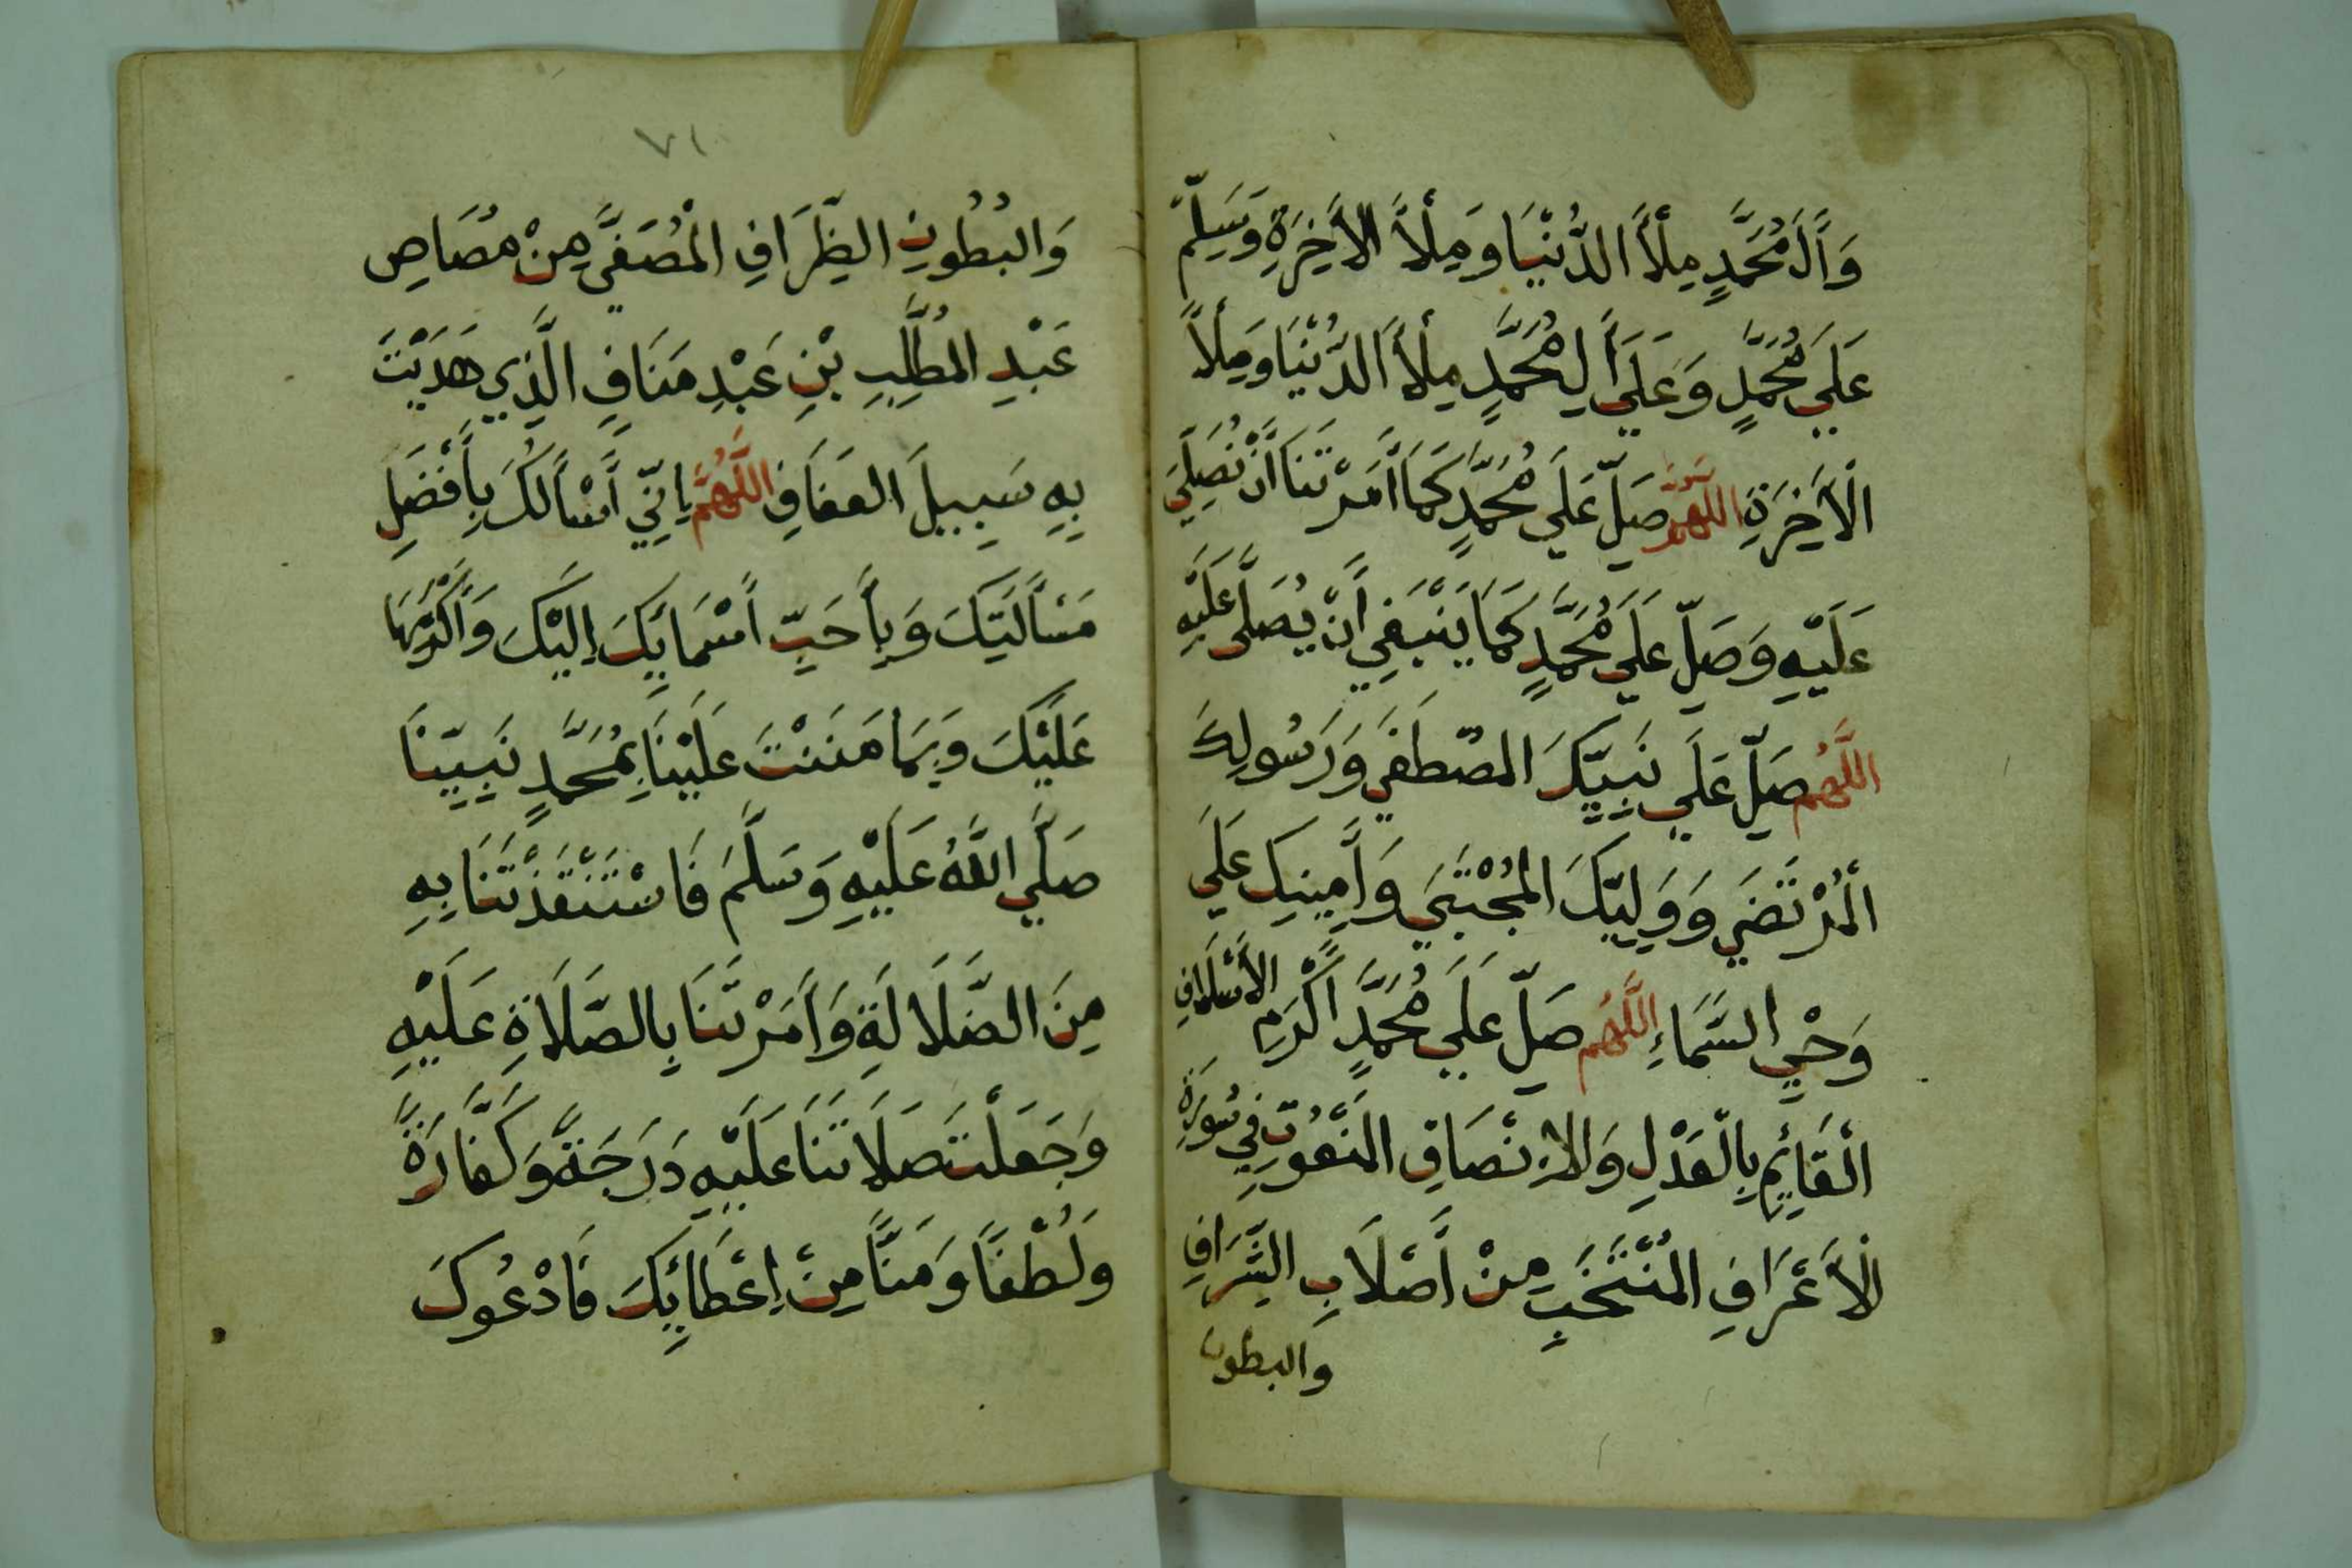 وَأَلَ مُحَمَّدٍ مِلْأَ الدُّنْيَا وَمِلْأَ الْأَخِرَةِ وَسَلِّمْ
عَلَي مُحَمَّدٍ وَعَلَي أَلِ مُحَمَّدٍ مِلْأَ الدُّنْيَا وَمِلْأَ
الْأَخِرَةِ اللَّهُمَّ صَلِّ عَلَي مُحَمَّدٍ كَمَا أَمَرْتَنَا أَنْ نُصَلِّيَ
عَلَيْهِ وَصَلِّ عَلَي مُحَمَّدٍ كَمَا يَنْبَغِي أَنْ يُصَلَّى عَلَيْهِ
اللَّهُم صَلِّ عَلَي نَبِيِّكَ المصْطَفَي وَرَسُولِكَ
الْمُرْتَضَي وَوَلِيِّكَ المُجْتَبَي وَأَمِينِكَ عَلَي
وَحْيِ السَّمَاءِ اللَّهُم صَلِّ عَلَي مُحَمَّدٍ أَكْرَمِ الأَسْلَافِ
الْقَائِمِ بِالْعَدْلِ وَالْاِنْصَافِ المَنْعُوتِ فِي سُورَةِ
الْأَعْرَافِ المُنْتَخَبِ مِنْ أَصْلَابِ الشِّرَافِ
والبطون
٧١
وَالبُطُونِ الظِّرَافِ الْمُصَفَّي مِنْ مُصَاصِ
عَبْدِ المُطَّلِبِ بْنِ عَبْدِ مَنَافٍ الَّذِي هَدَيْتَ
بِهِ سَبِيلَ العَفَافِ اللَّهُمَّ إِنِّي أَسْأَلُكَ بِأَفْضَلِ
مَسْأَلَتِكَ وَبِأَحَبِّ أَسْمَائِكَ إِلَيْكَ وَأَكْرَمِهَا
عَلَيْكَ وَبِمَا مَنَنْتَ عَلَيْنَا بِمُحَمَّدٍ نَبِيِّنَا
صَلَّي اللَّهُ عَلَيْهِ وَسَلَّمَ فَاسْتَنْقَذْتَنَا بِهِ
مِنَ الضَّلَالَةِ وَأَمَرْتَنَا بِالصَّلَاةِ عَلَيْهِ
وَجَعَلْتَ صَلَاتَنَا عَلَيْهِ دَرَجَةً وَكَفَّارَةً
وَلُطْفًا وَمَنًّا مِنْ اِعْطَائِكَ فَادْعُوكَ